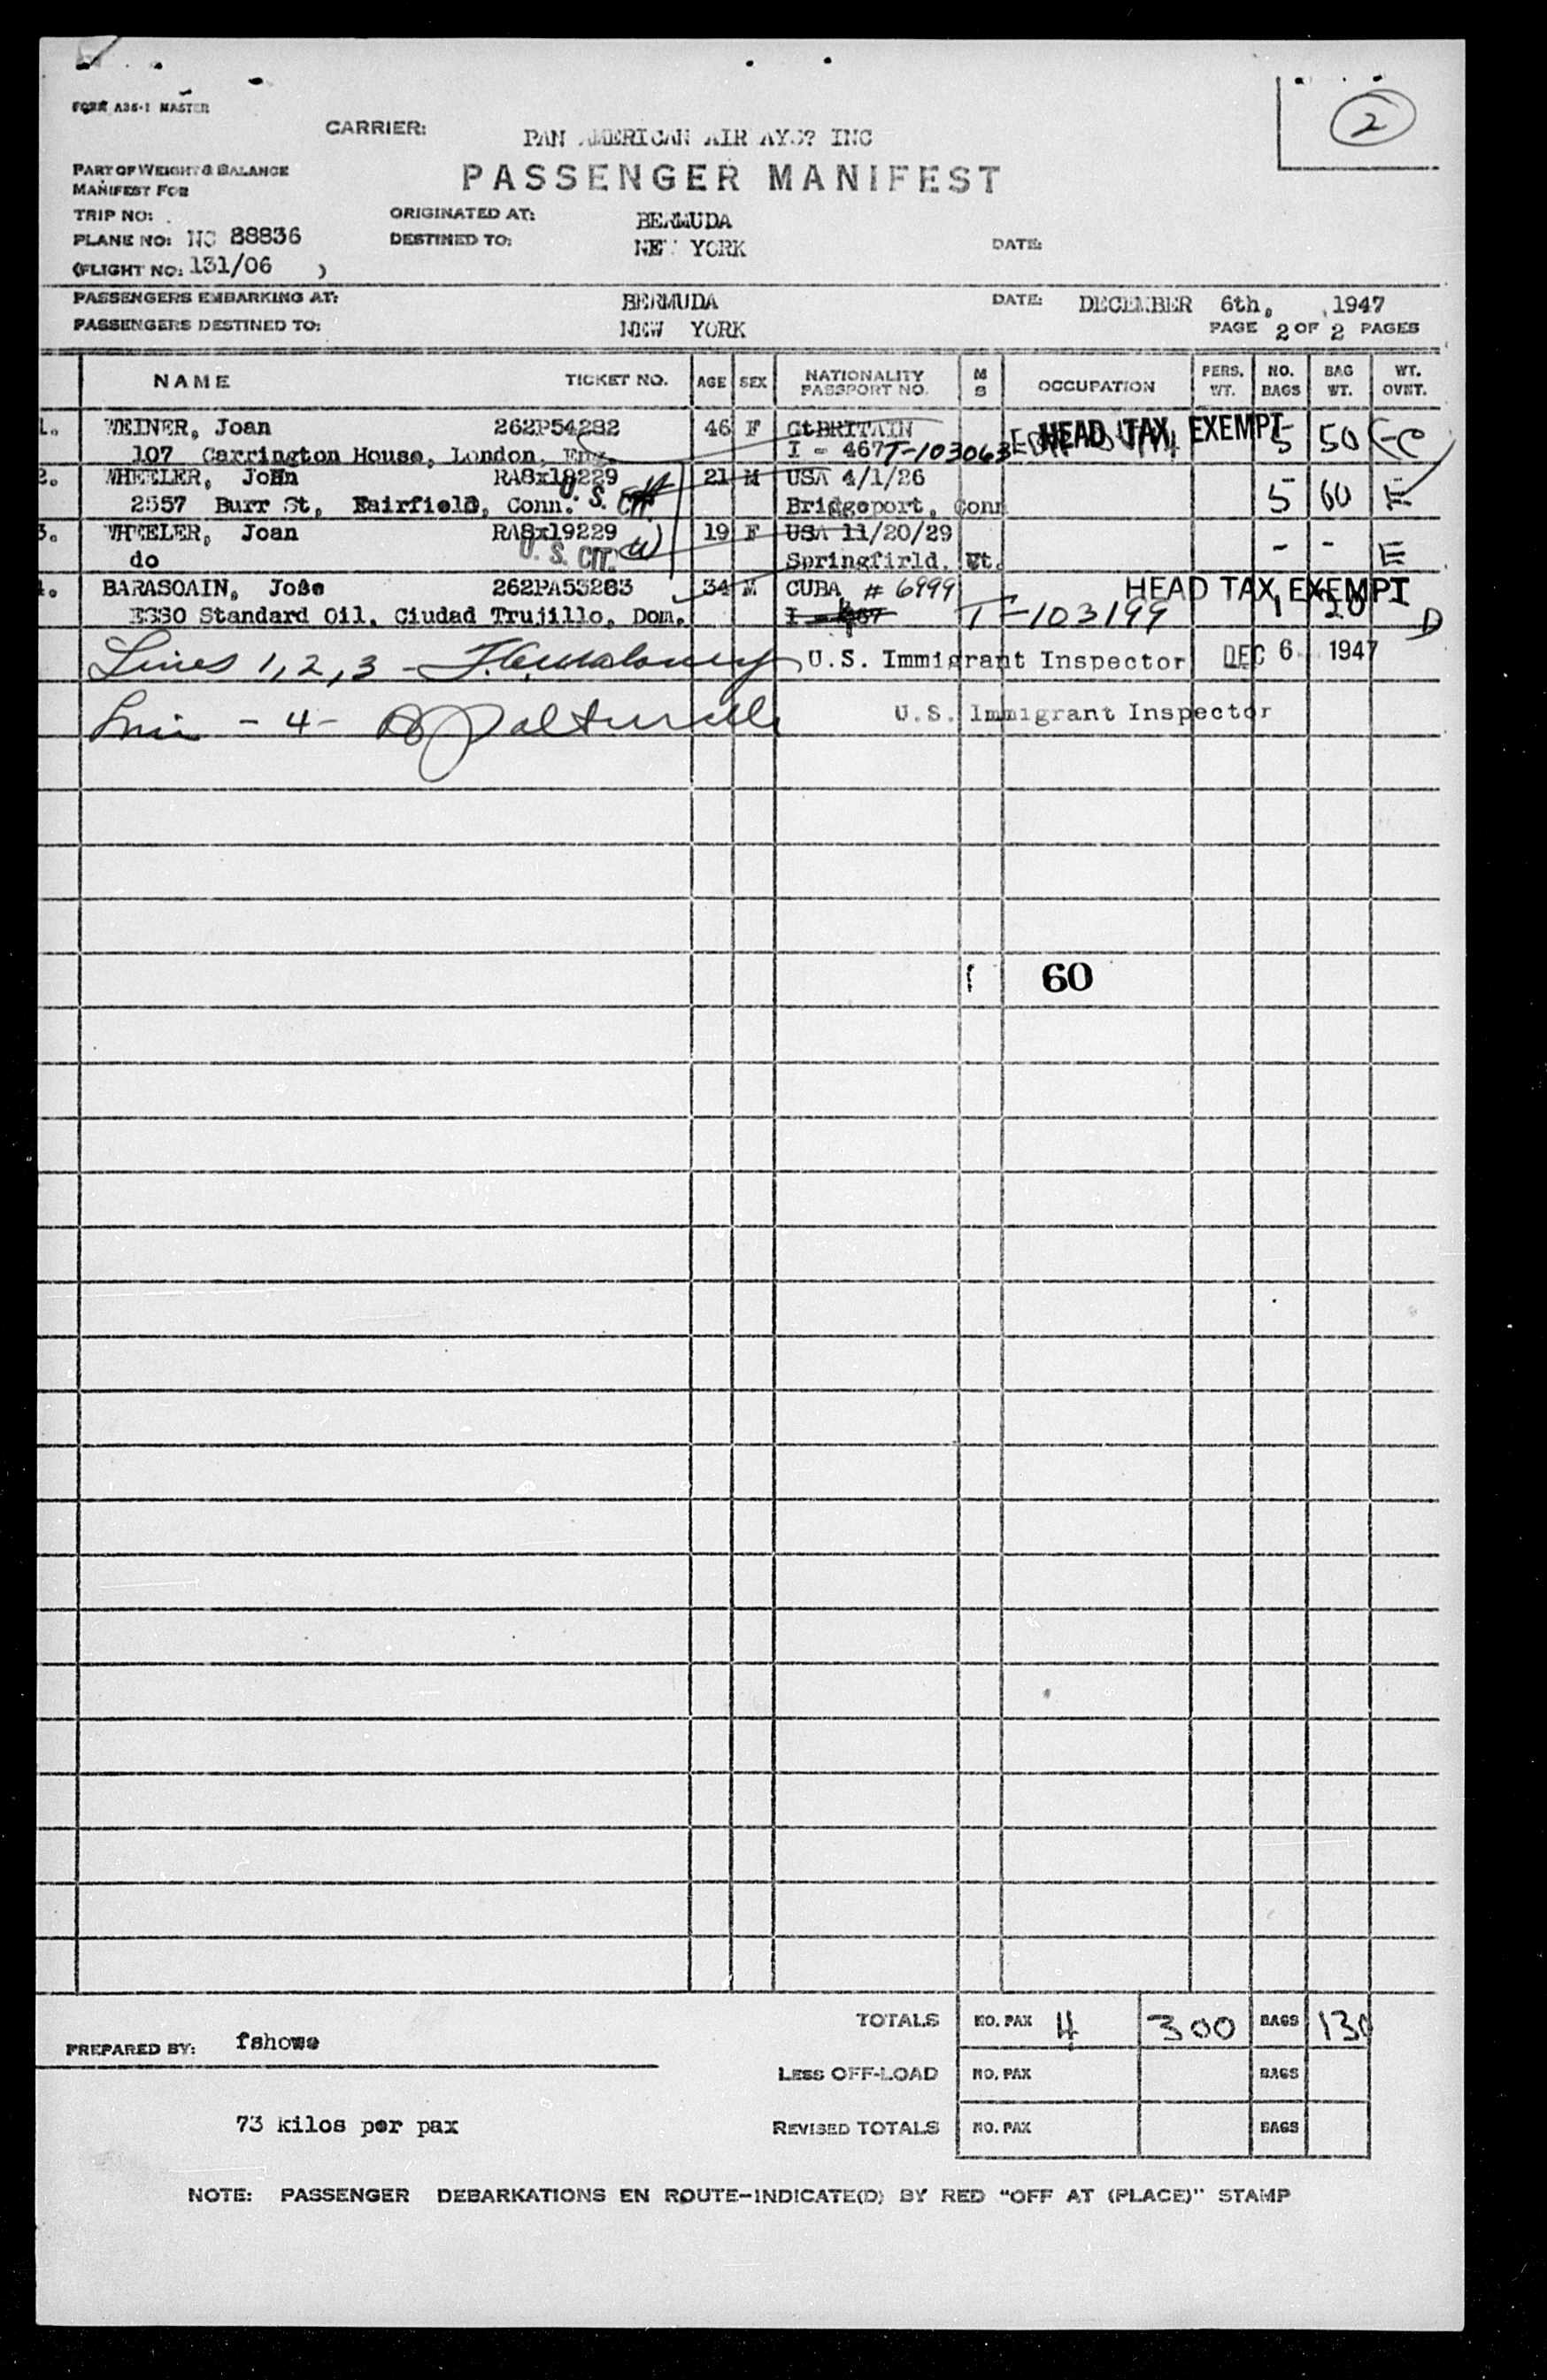 FORM A36-1 MASTER
2
CARRIER: PAN AMERICAN AIR AYS? INC
PART OF WEIGHT & BALANCE
MANIFEST FOR
PASSENGER MANIFEST
TRIP NO:
ORIGINATED AT: BERMUDA
PLANE NO: NC 88836
DESTINED TO: NEW YORK
DATE:
(FLIGHT NO: 131/06 )
PASSENGERS EMBARKING AT: BERMUDA DATE: DECEMBER 6th, 1947
PASSENGERS DESTINED TO: NEW YORK PAGE 2 OF 2 PAGES
NAME TICKET NO. AGE SEX NATIONALITY PASSPORT NO. M S OCCUPATION PERS. WT. NO. BAGS BAG WT. WT. OVNT.
1. WEINER, Joan 262P54282 46 F Gt BRITAIN HEAD TAX EXEMPT 5 50
107 Carrington House, London, Eng. I - 467 T-103063
2. WHEELER, John RA8x19229 21 M USA 4/1/26 5 60 E
2557 Burr St, Fairfield, Conn. U. S. CIT. Bridgeport, Conn
3. WHEELER, Joan RA8x19229 19 F USA 11/20/29 - - E
do U. S. CIT. Springfirld, Vt.
4. BARASOAIN, Jose 262PA53283 34 M CUBA # 6999 HEAD TAX EXEMPT 1 20 D
ESSO Standard Oil, Ciudad Trujillo, Dom. T-103199
Lines 1, 2, 3 - U.S. Immigrant Inspector DEC 6 1947
Line - 4 - U.S. Immigrant Inspector
60
TOTALS NO. PAX 4 300 BAGS 130
PREPARED BY: fshowe
LESS OFF-LOAD NO. PAX BAGS
73 kilos per pax
REVISED TOTALS NO. PAX BAGS
NOTE: PASSENGER DEBARKATIONS EN ROUTE-INDICATE(D) BY RED "OFF AT (PLACE)" STAMP